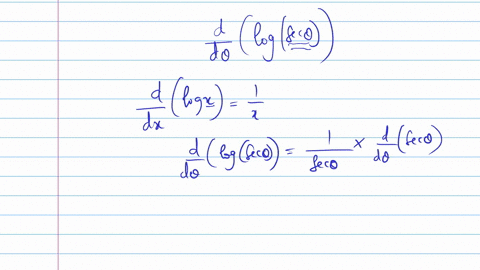 d/dθ (log(secθ))
d/dx (log x) = 1/x
d/dθ (log(secθ)) = 1/secθ × d/dθ (secθ)